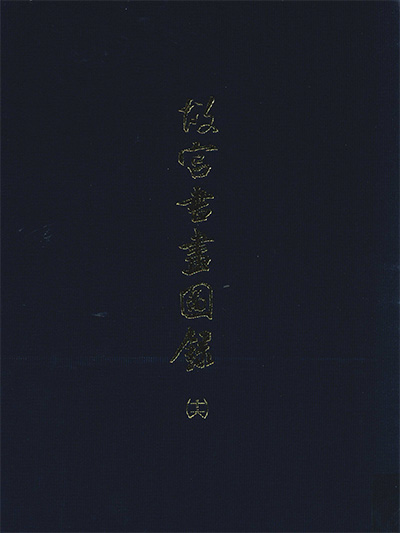 故宮書畫圖錄
(十六)